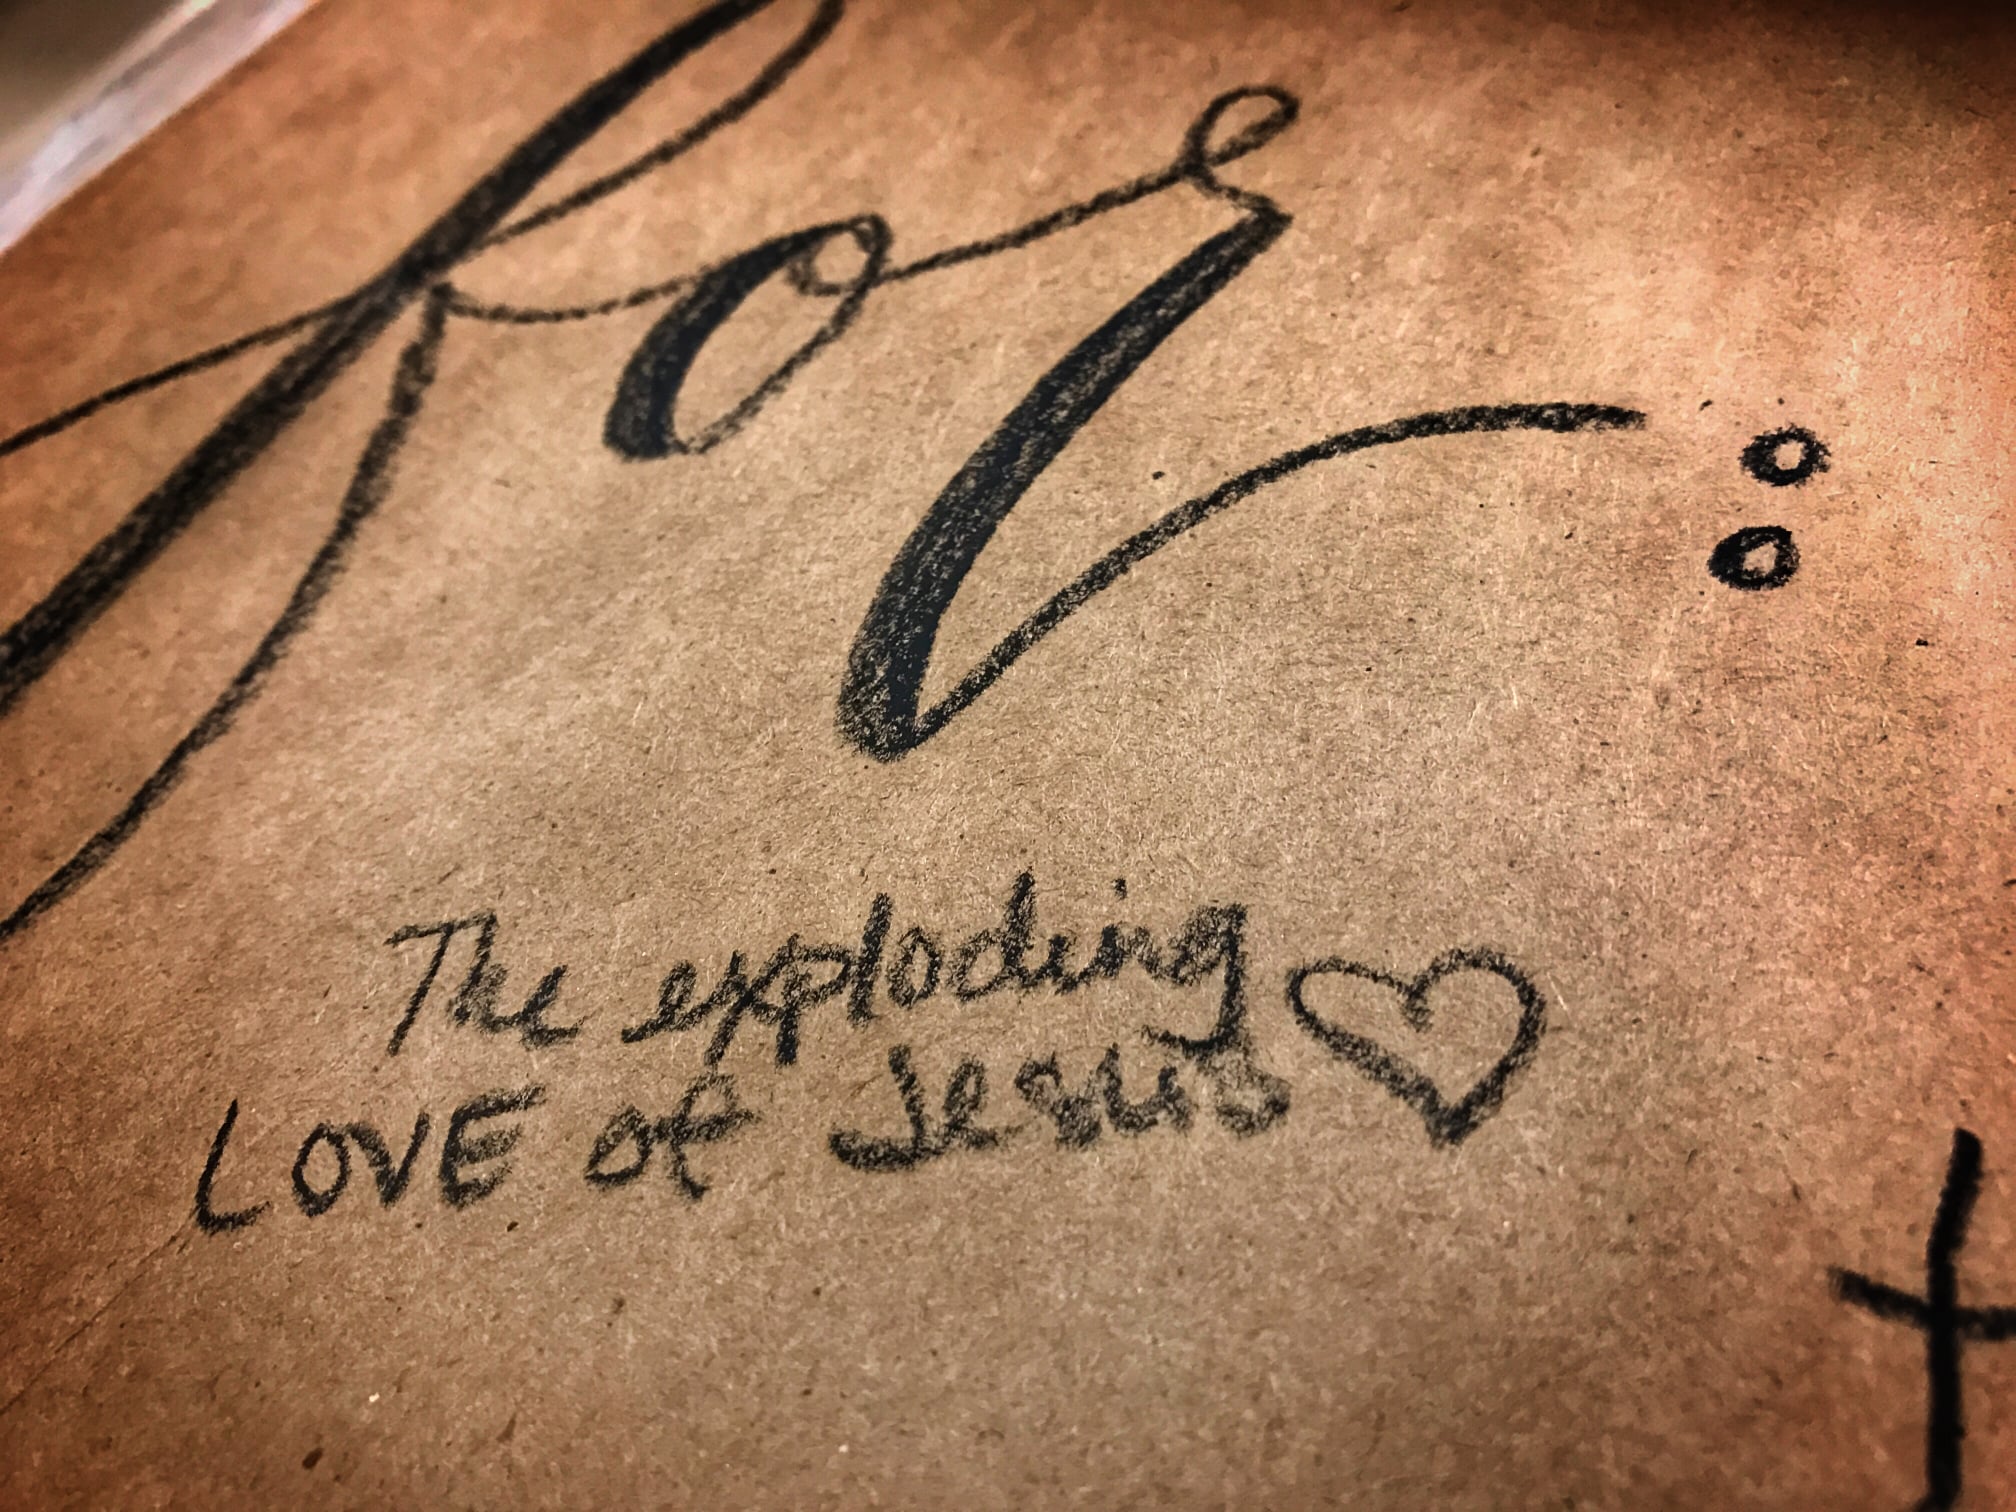 for:
The exploding
LOVE of Jesus